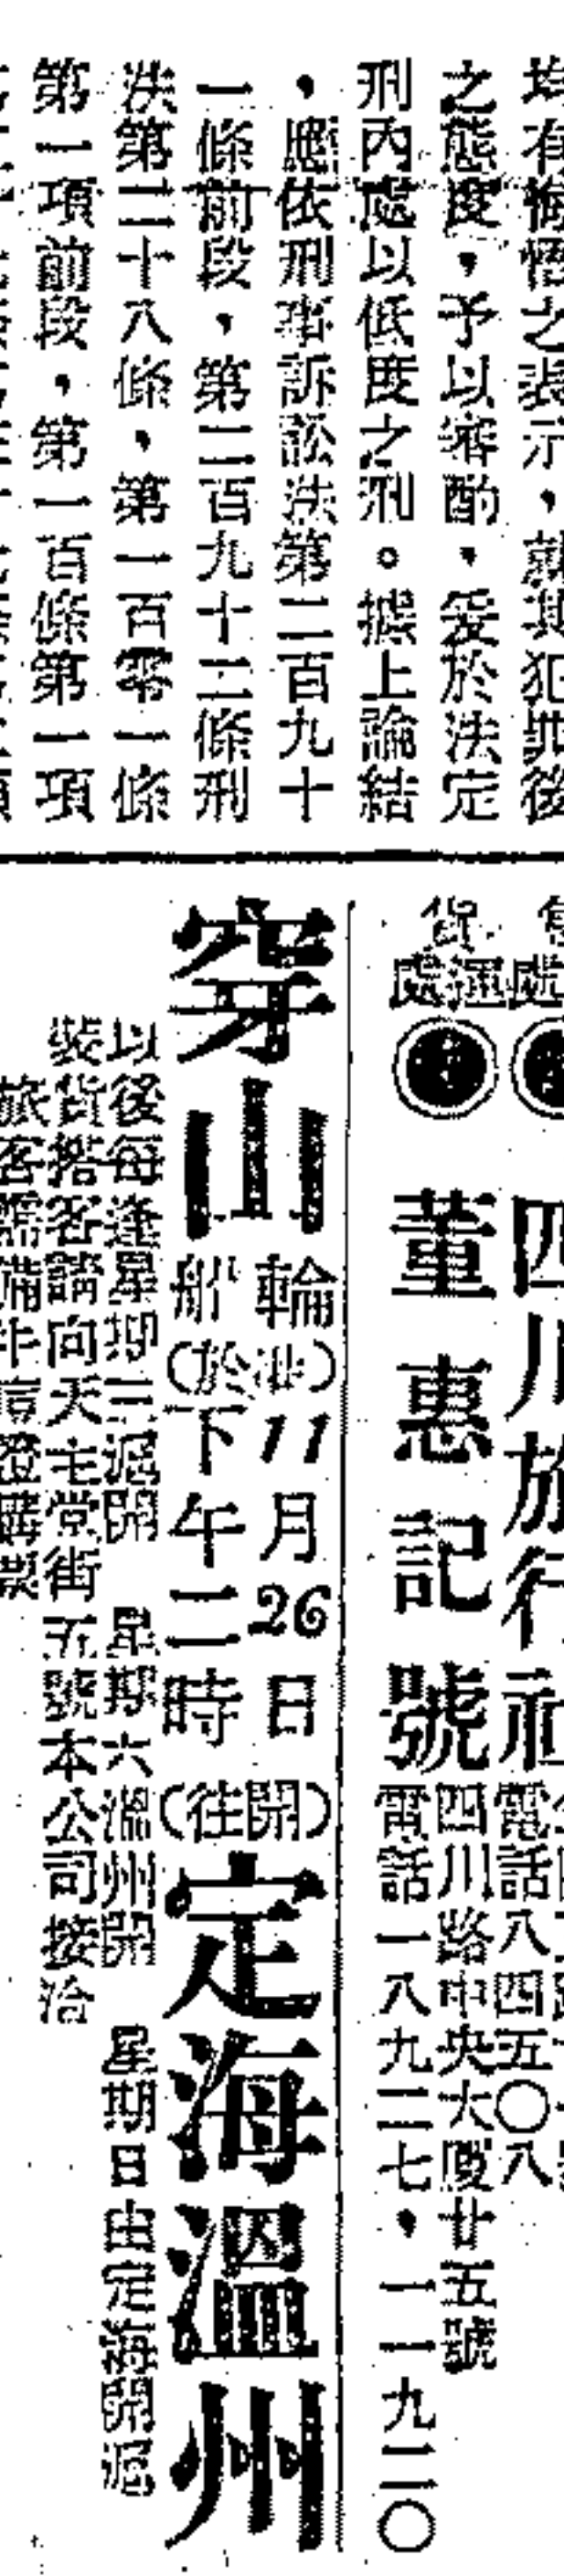 均有悔悟之表示，就其犯罪後
之態度，予以審酌，爰於法定
刑內處以低度之刑。據上論結
，應依刑事訴訟法第二百九十
一條前段，第二百九十二條刑
法第二十八條，第一百零一條
第一項前段，第一百條第一項
四川旅行社 電話八四五〇八
貨運處
董惠記號 四川路中央大廈廿五號
電話一八九二七，一一九二〇
穿山輪船（於滬）11月26日下午二時（開往）定海溫州
以後每逢星期三滬開 星期六溫州開 星期日由定海開滬
裝貨搭客請向天主堂街五號本公司接洽
旅客需備牛痘證購票